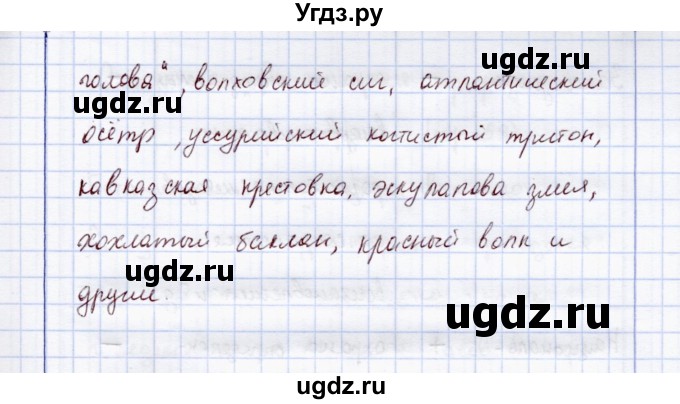 Угдз.ру
ugdz.ru
голова", волховский сиг, атлантический
ugdz.ru
осётр, уссурийский когтистый тритон,
ugdz.ru
кавказская крестовка, эскулапова змея,
хохлатый баклан, красный волк и
ugdz.ru
другие.
ugdz.ru
ugdz.ru